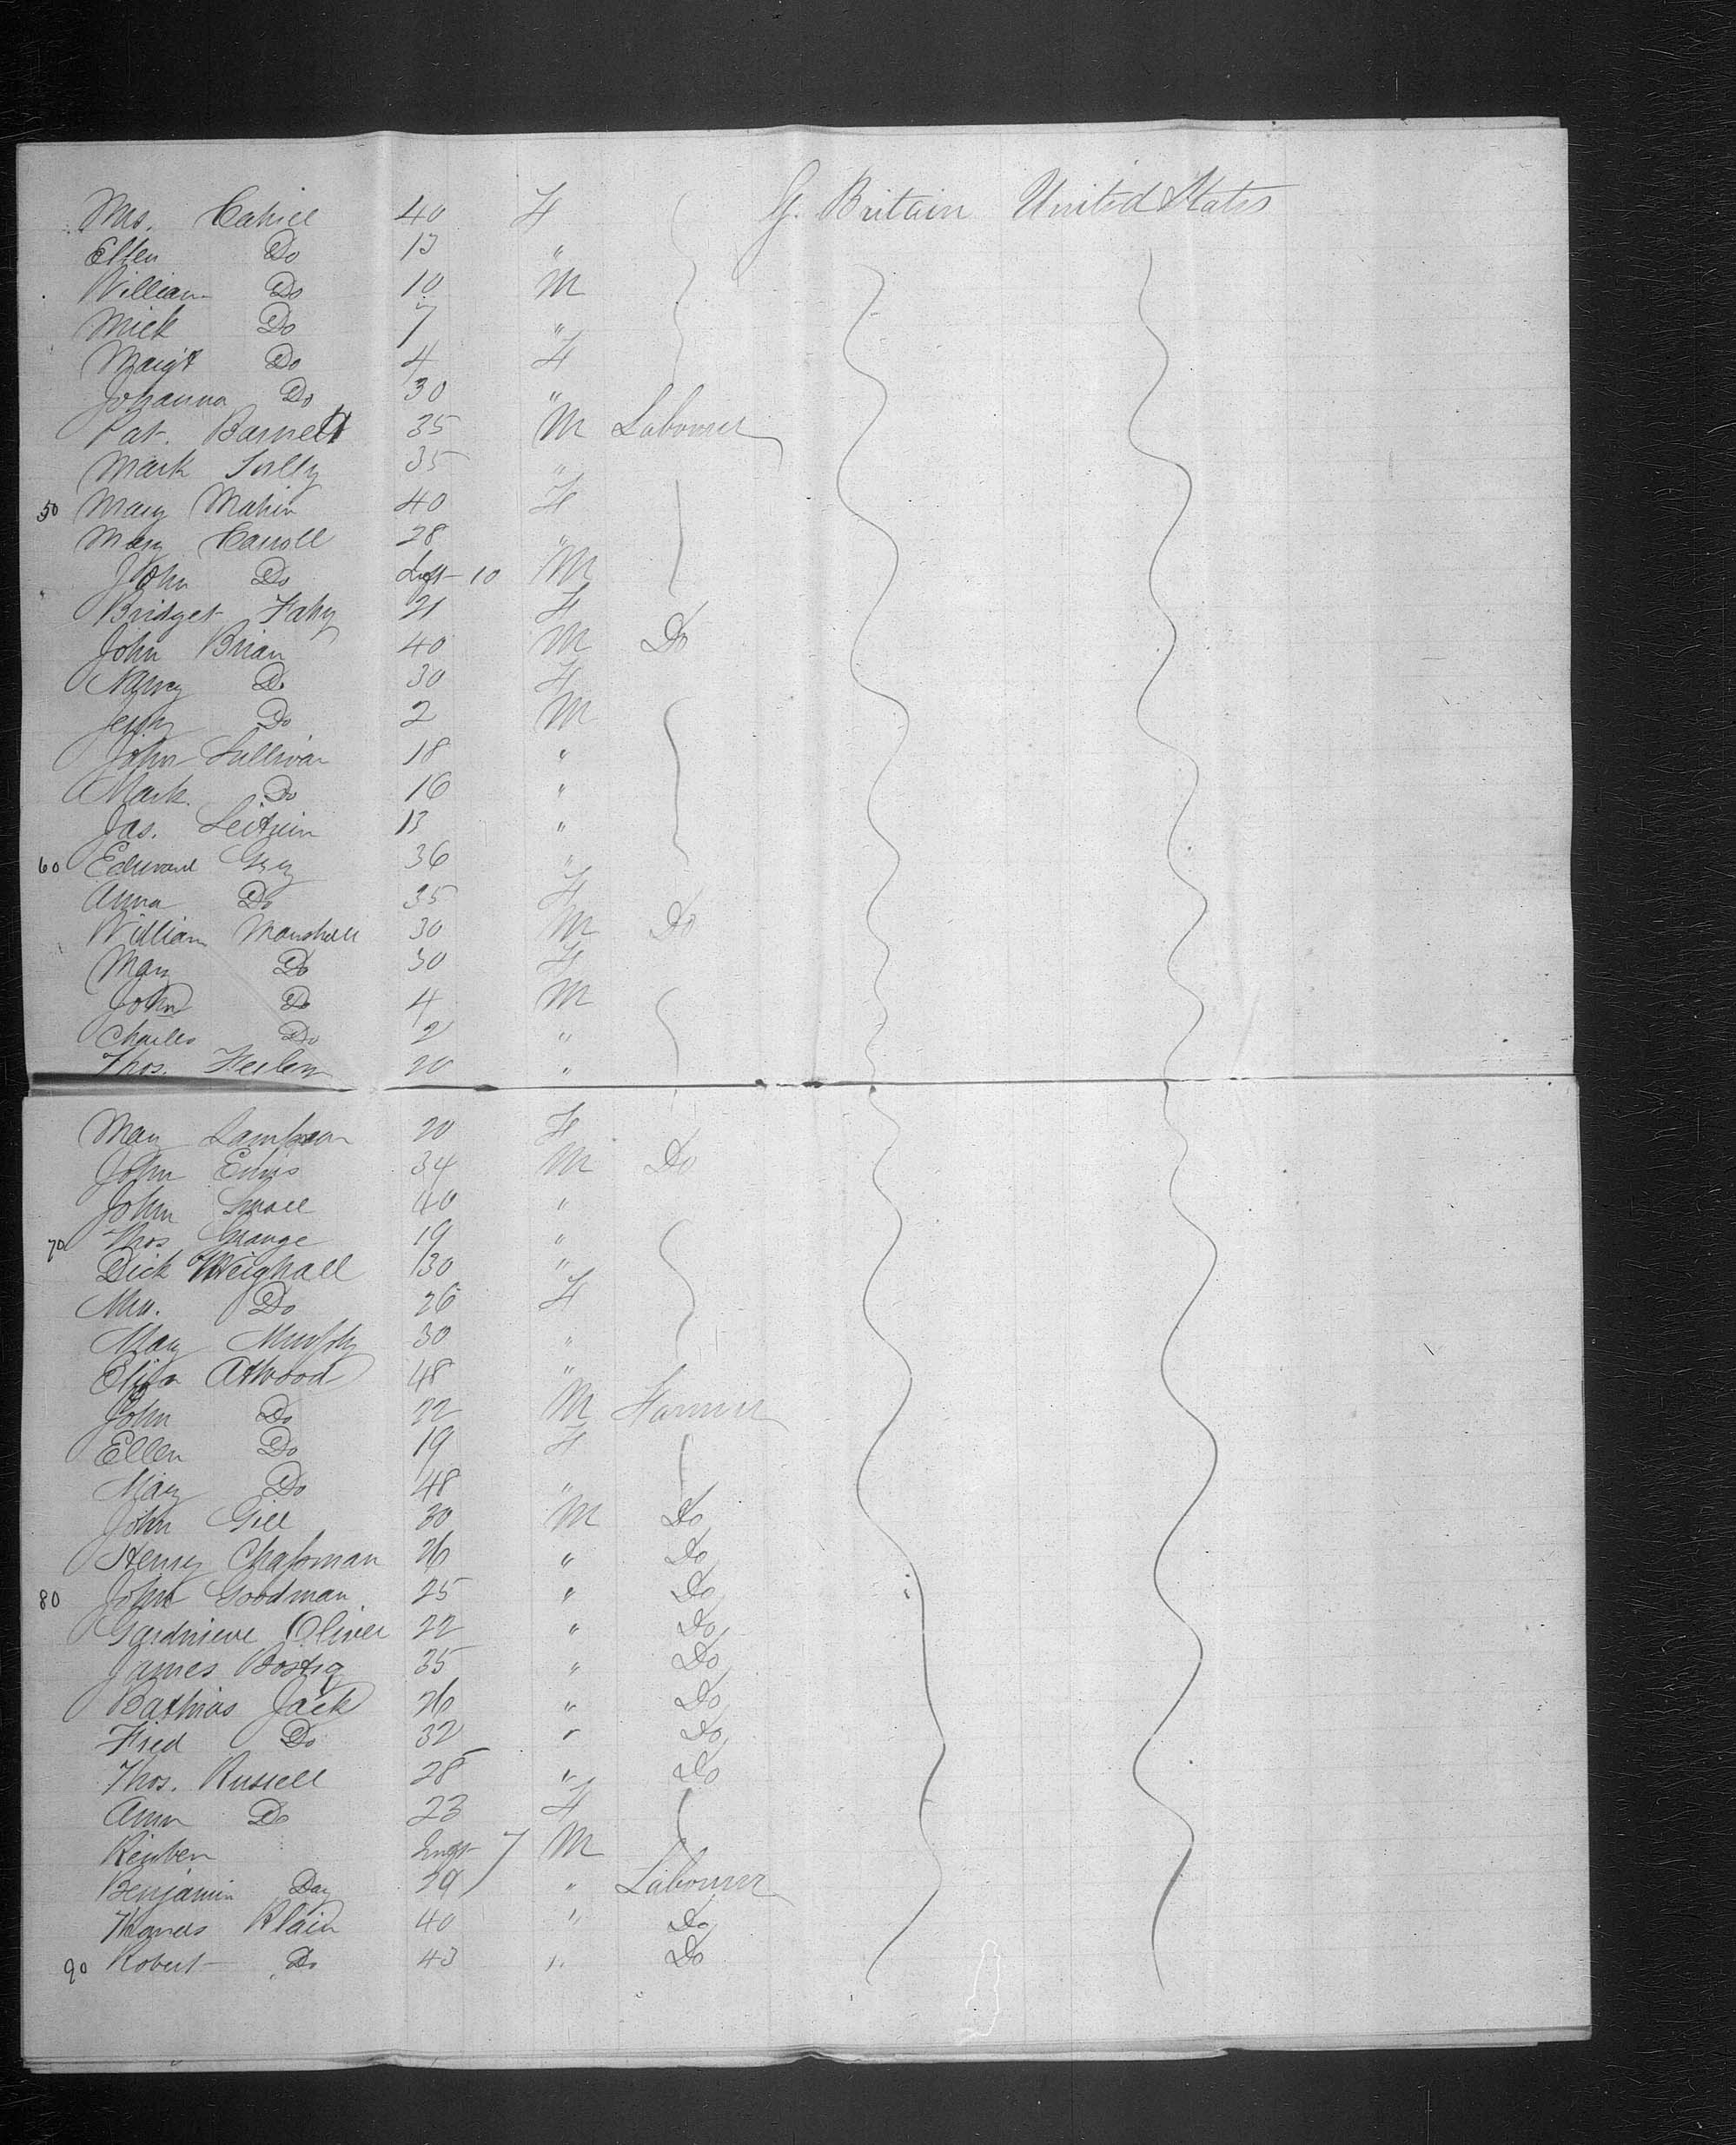 Mrs. Cahill 40 F G. Britain United States
Ellen Do 13 "
William Do 10 M
Mick Do 7 "
Margt Do 4 F
Johanna Do 30 "
Pat. Barnett 35 M Labourer
Mark 35 "
50 Mary Mahin 40 F
Mary Carroll 28 "
John Do Inft 10 M
Bridget Fahy 21 F
John Brian 40 M Do
Nancy Do 30 F
Do 2 M
John Sullivan 18 "
Mark Do 16 "
Jas. 13 "
60 Edward 36 "
Anna Do 35 F
William Marshall 30 M Do
Mary Do 30 F
John Do 4 M
Charles Do 2 "
Thos. 20 "
May 20 F
John 34 M Do
John Small 40 "
70 Thos Grange 19 "
Dick Weighall 30 "
Mrs. Do 26 F
Mary Murphy 30 "
Eliza Atwood 48 "
John Do 22 M Farmer
Ellen Do 19 F
Mary Do 48 "
John Gill 30 M Do
Henry Chapman 26 " Do
80 John Goodman 25 " Do
Oliver 22 " Do
James 35 " Do
Jack 26 " Do
Fred Do 32 " Do
Thos. Russell 28 " Do
Ann Do 23 F
Reuben Inft 7 M
Benjamin Day 29 " Labourer
Thomas Blain 40 " Do
90 Robert Do 43 " Do